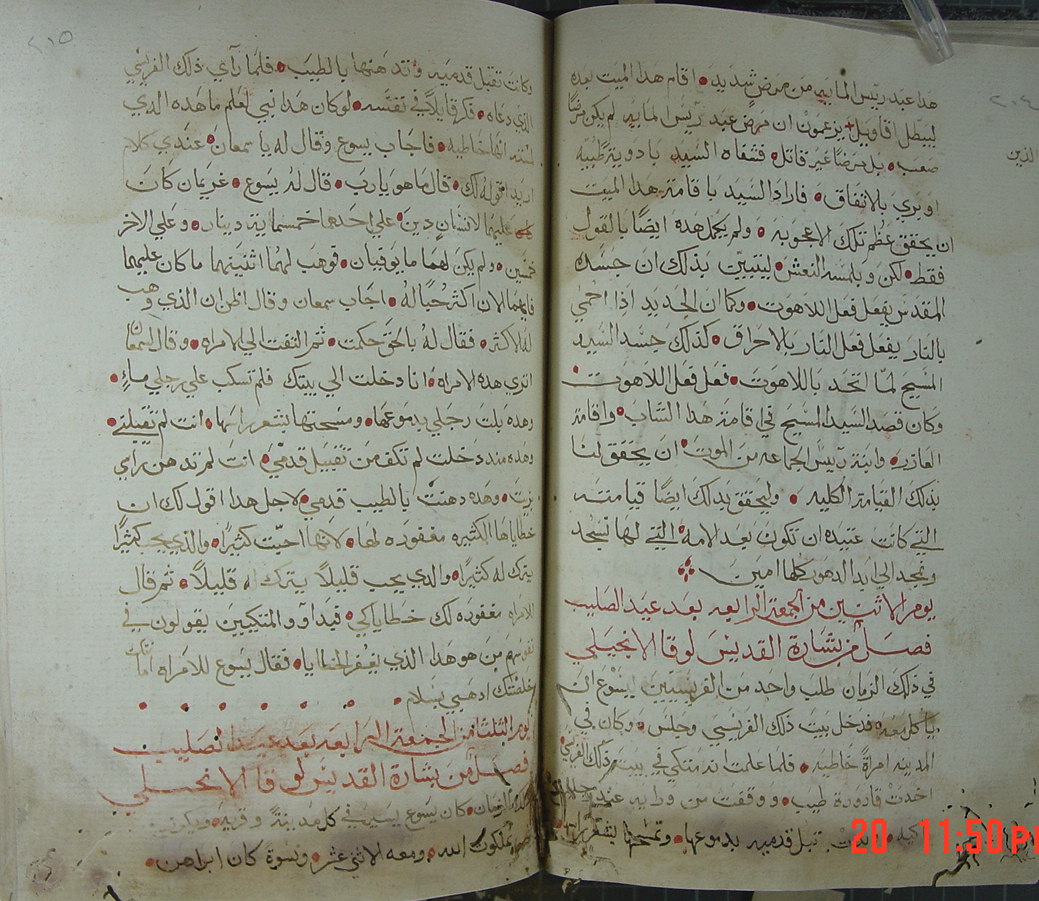 هذا عبد رئيس المايه من مرض شديد • اقام هذا الميت بعده
ليبطل اقاويل يزعمون ان مرض عبد رئيس المايه لم يكن مرضًا
صعب • بل مرضًا غير قاتل • فشفاه السيد بادوية طبيه
او بري بالاتفاق • فاراد السيد باقامة هذا الميت
ان يحقق عظم تلك الاعجوبه • ولم يكمل هذه ايضًا بالقول
فقط • لكن وبلمسه النعش • ليتبين بذلك ان جسده
المقدس يفعل فعل اللاهوت • وكما ان الحديد اذا احمي
بالنار يفعل فعل النار بالاحراق • كذلك جسد السيد
المسيح لما اتحد باللاهوت • فعل فعل اللاهوت •
وكان قصد السيد المسيح في اقامة هذا الشاب • واقامة
العازر • وابنة رييس الجماعه من الموت • ان يحقق لنا
بذلك القيامة الكليه • وليحقق بذلك ايضًا قيامته
التي كانت عتيده ان تكون بعد لامه • التي لها نسجد
ونمجد الي ابد الدهور كلها امين
يوم الاثنين من الجمعة الرابعه بعد عيد الصليب
فصل من بشارة القديس لوقا الانجيلي
في ذلك الزمان طلب واحد من الفريسيين ليسوع ان
ياكل معه • فدخل بيت ذلك الفريسي وجلس • وكان في
المدينه امراةً خاطيه • فلما علمت انه متكي في بيت ذلك الفريسي
اخذت قارورة طيب • ووقفت من ورايه عند رجليه
باكيه • تبل قدميه بدموعها • وتمسحها بشعر راسها
الذين
٢١٥
وكانت تقبل قدميه وتدهنها بالطيب • فلما رآي ذلك الفريسي
الذي دعاه • فكر قايلاً في نفسه • لو كان هذا نبي لعلم ما هذه الذي
لمسته انها خاطيه • فاجاب يسوع وقال له يا سمعان • عندي كلام
اريد اقوله لك • قال ما هو يا رب • قال له يسوع • غريمان كان
عليهما لانسان دين • علي احدهما خمسماية دينار • وعلي الاخر
خمسين • ولم يكن لهما ما يوفيان • فوهب لهما اثنينهما ما كان عليهما
فايهما الان اكثر حبًا له • اجاب سمعان وقال اظن ان الذي وهب
له الاكثر • فقال له بالحق حكمت • ثم التفت الي الامراه • وقال لسمعان
اتري هذه الامراه • انا دخلت الي بيتك فلم تسكب علي رجلي ماءٍ •
وهذه بلت رجلي بدموعها • ومسحتها بشعر راسها • انت لم تقبلني •
وهذه منذ دخلت لم تكف من تقبيل قدمي • انت لم تدهن راسي
بزيت • وهذه دهنت بالطيب قدمي • لاجل هذا اقول لك ان
خطاياها الكثيره مغفوره لها • لانها احبت كثيرًا • والذي يحب كثيرًا
يترك له كثيرًا • والذي يحب قليلاً يترك له قليلاً • ثم قال
للامراه مغفوره لك خطاياكي • فبداوو المتكيين يقولون في
نفوسهم من هو هذا الذي يغفر الخطايا • فقال يسوع للامراه امانتك
خلصتك اذهبي بسلام
يوم الثلثا من الجمعة الرابعه بعد عيد الصليب
فصل من بشارة القديس لوقا الانجيلي
في ذلك الزمان • كان يسوع يسير في كل مدينة وقريه • ويكرز
ملكوت الله • ومعه الاثني عشر • ونسوة كان ابراهن •
20 11:50 PM